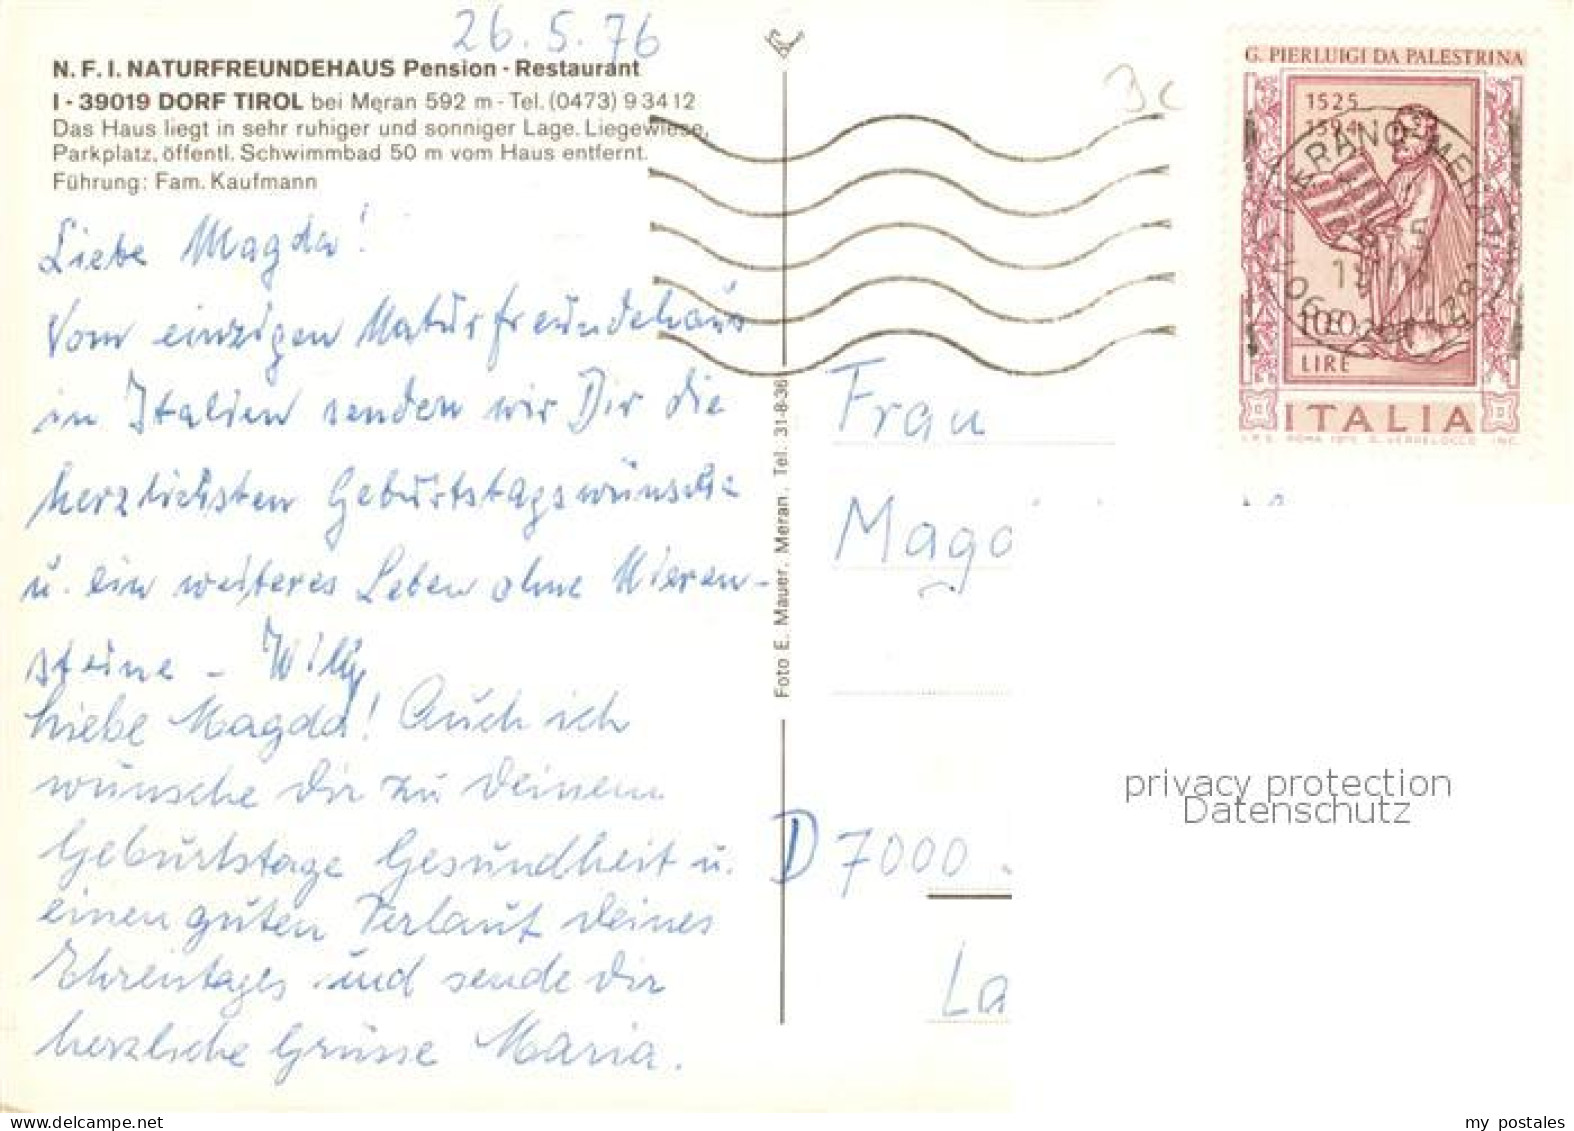 26.5.76
N.F.I. NATURFREUNDEHAUS Pension - Restaurant
I - 39019 DORF TIROL bei Meran 592 m - Tel. (0473) 93412
Das Haus liegt in sehr ruhiger und sonniger Lage. Liegewiese,
Parkplatz, öffentl. Schwimmbad 50 m vom Haus entfernt.
Führung: Fam. Kaufmann
Liebe Magda!
Vom einzigen Naturfreundehaus
in Italien senden wir Dir die
herzlichsten Geburtstagswünsche
u. ein weiteres Leben ohne Nieren-
steine - Willy
Liebe Magda! Auch ich
wünsche dir zu deinem
Geburtstage Gesundheit u.
einen guten Verlauf deines
Ehrentages und sende dir
herzliche Grüsse Maria.
Foto E. Mauer, Meran, Tel. 31-8-36
G. PIERLUIGI DA PALESTRINA
1525
1594
MERANO MERAN
100
LIRE
ITALIA
Frau
Magd
D 7000
La
privacy protection
Datenschutz
my postales
www.delcampe.net